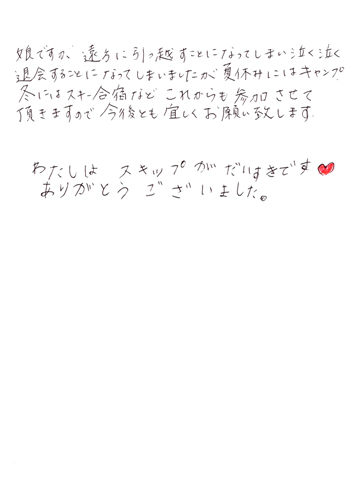 娘ですが、遠方に引っ越すことになってしまい泣く泣く
退会することになってしまいましたが夏休みにはキャンプ
冬にはスキー合宿など これからも参加させて
頂きますので今後とも宜しくお願い致します.
わたしは スキップが だいすきです
ありがとう ございました。